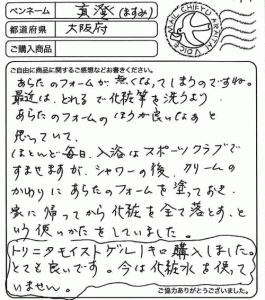 ペンネーム 真澄 (ますみ)
都道府県 大阪府
ご購入商品
MARI CHIFF HARATAI VOICE
ご自由に商品に関するご感想などお書きください。
あらたのフォームが無くなってしまうのですね。
最近は、とれるで化粧筆を洗うより
あらたのフォームのほうが良いなぁと
思っていて、
ほとんど毎日、入浴はスポーツクラブで
すませますが、シャワーの後、クリームの
かわりにあらたのフォームを塗っておき
家に帰ってから化粧を全て落とす、と
いう使いかたをしていました。
トリニタモイストゲル1キロ購入しました。
とても良いです。今は化粧水を使って
いません。
ご協力ありがとうございました。